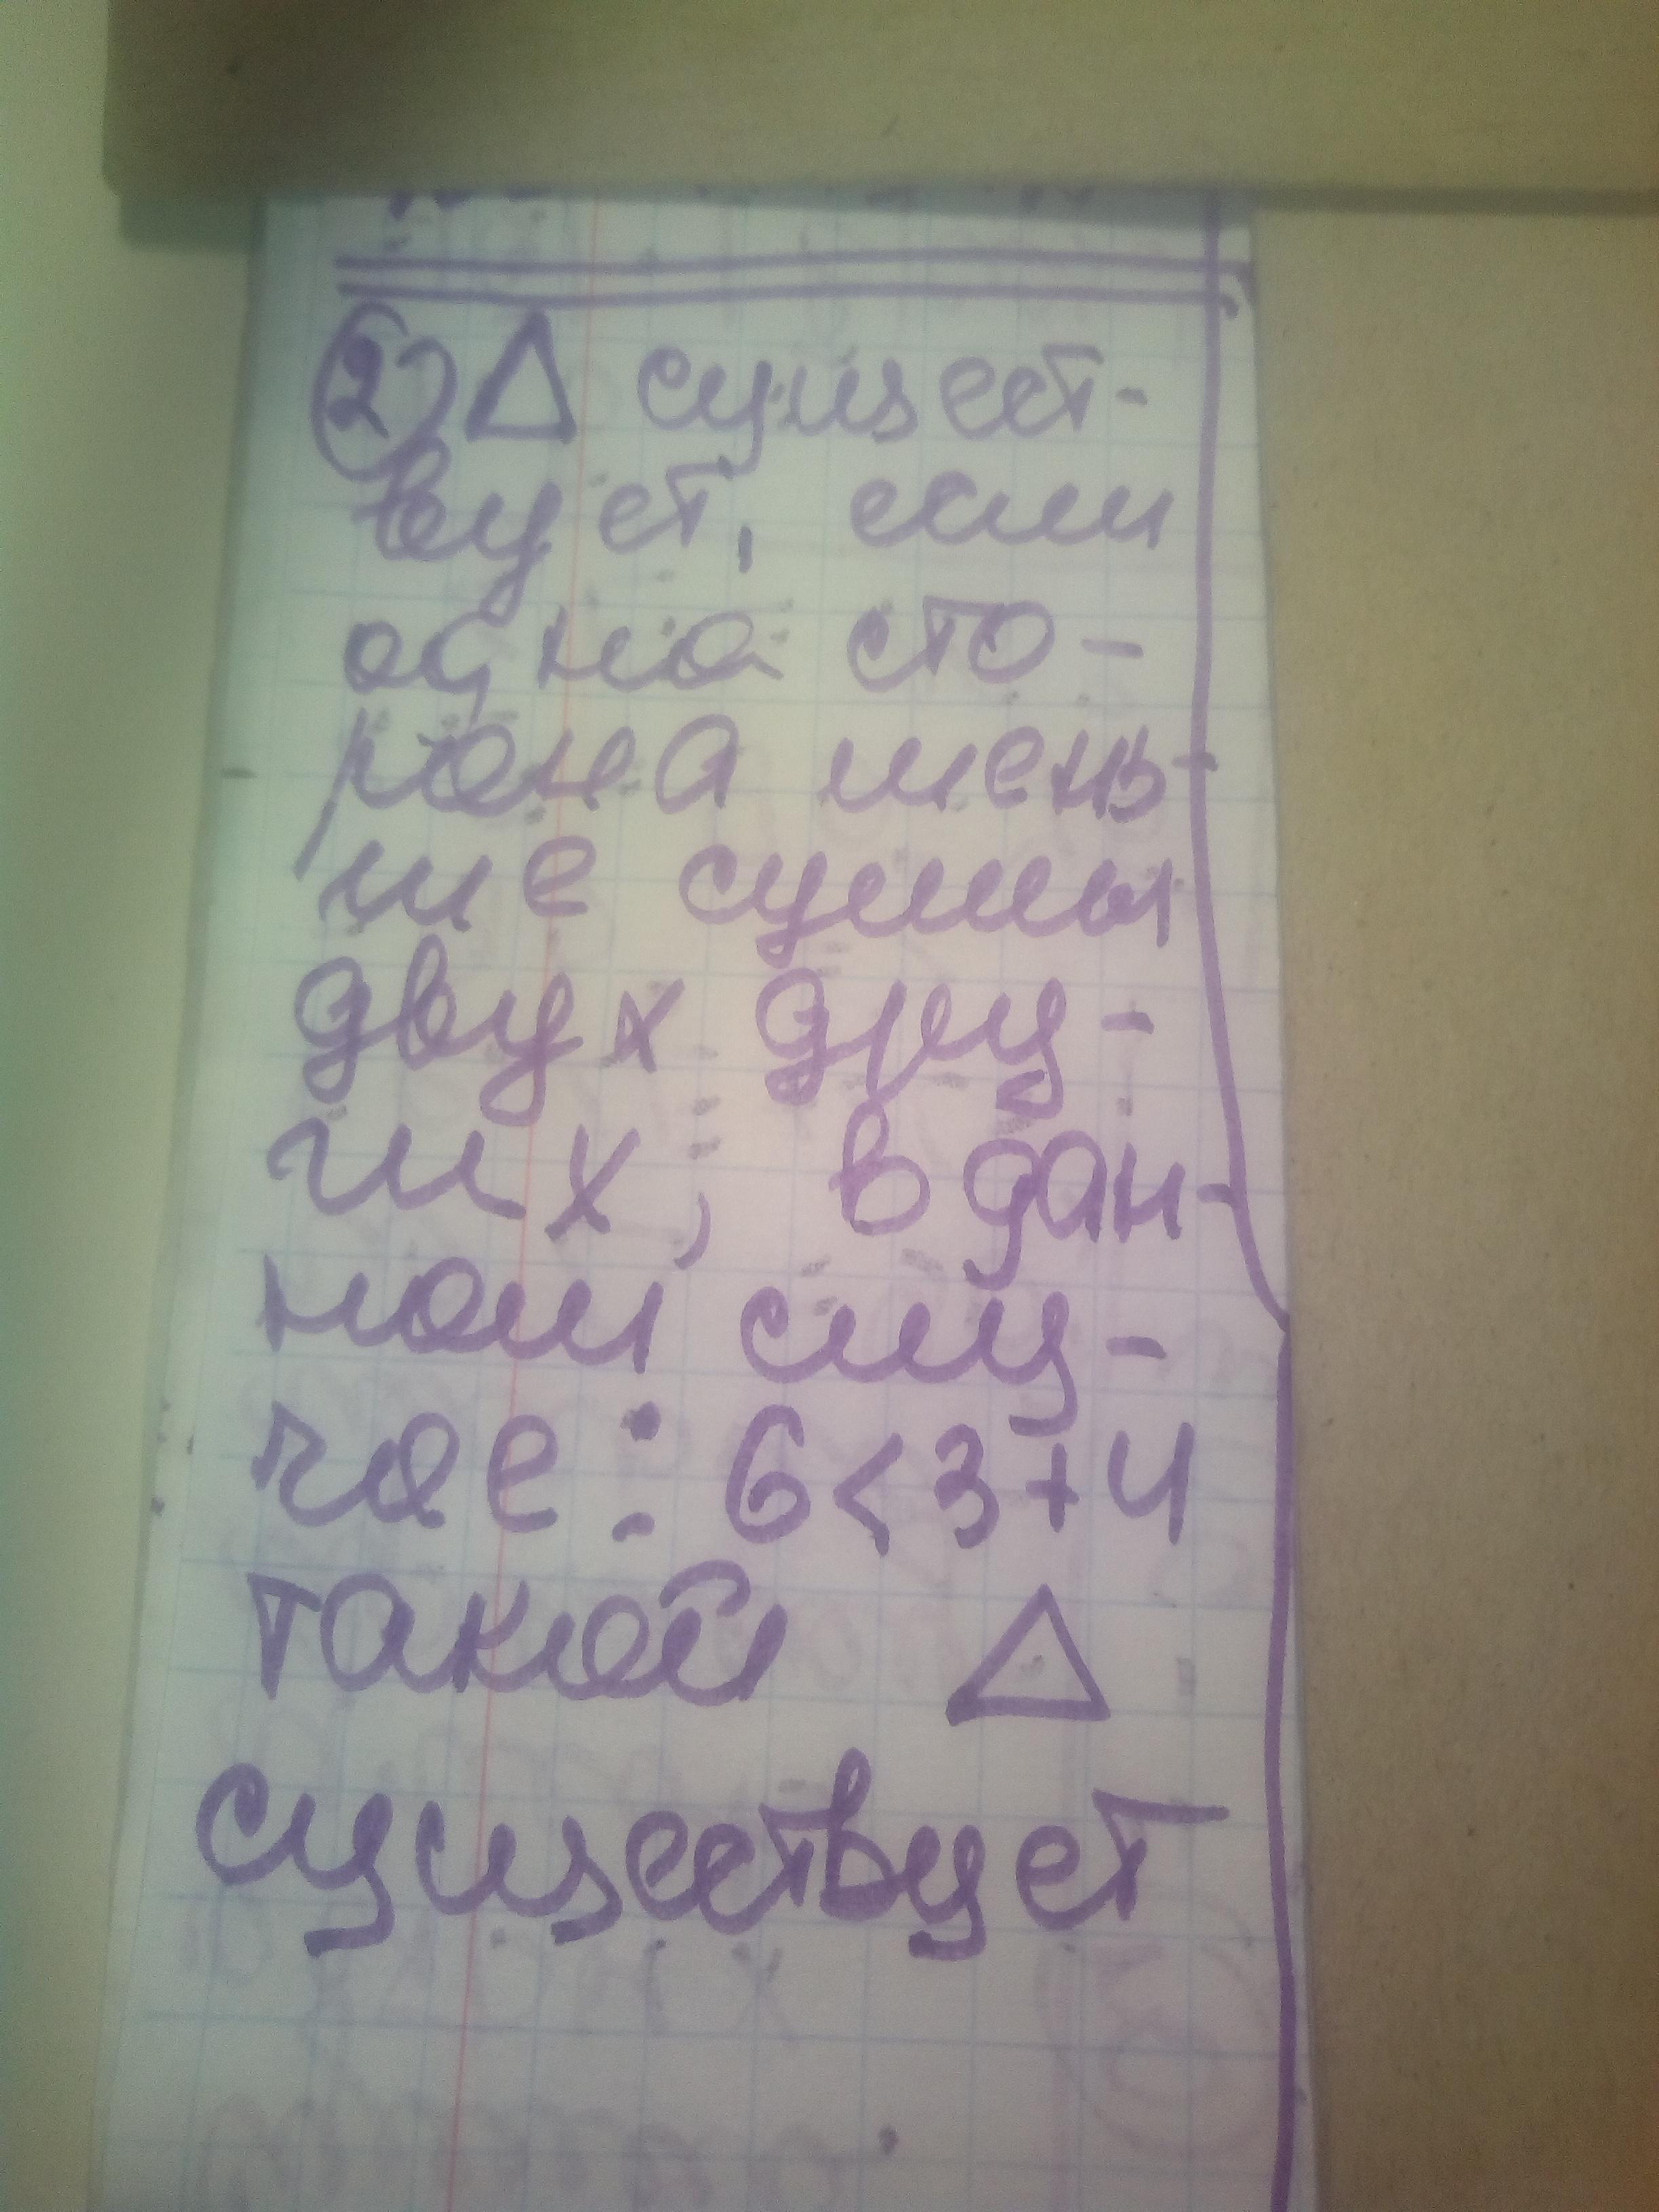 2) △ сущест-
вует, если
одна сто-
рона мень-
ше суммы
двух дру-
гих, в дан-
ном слу-
чае: 6<3+4
такой △
существует